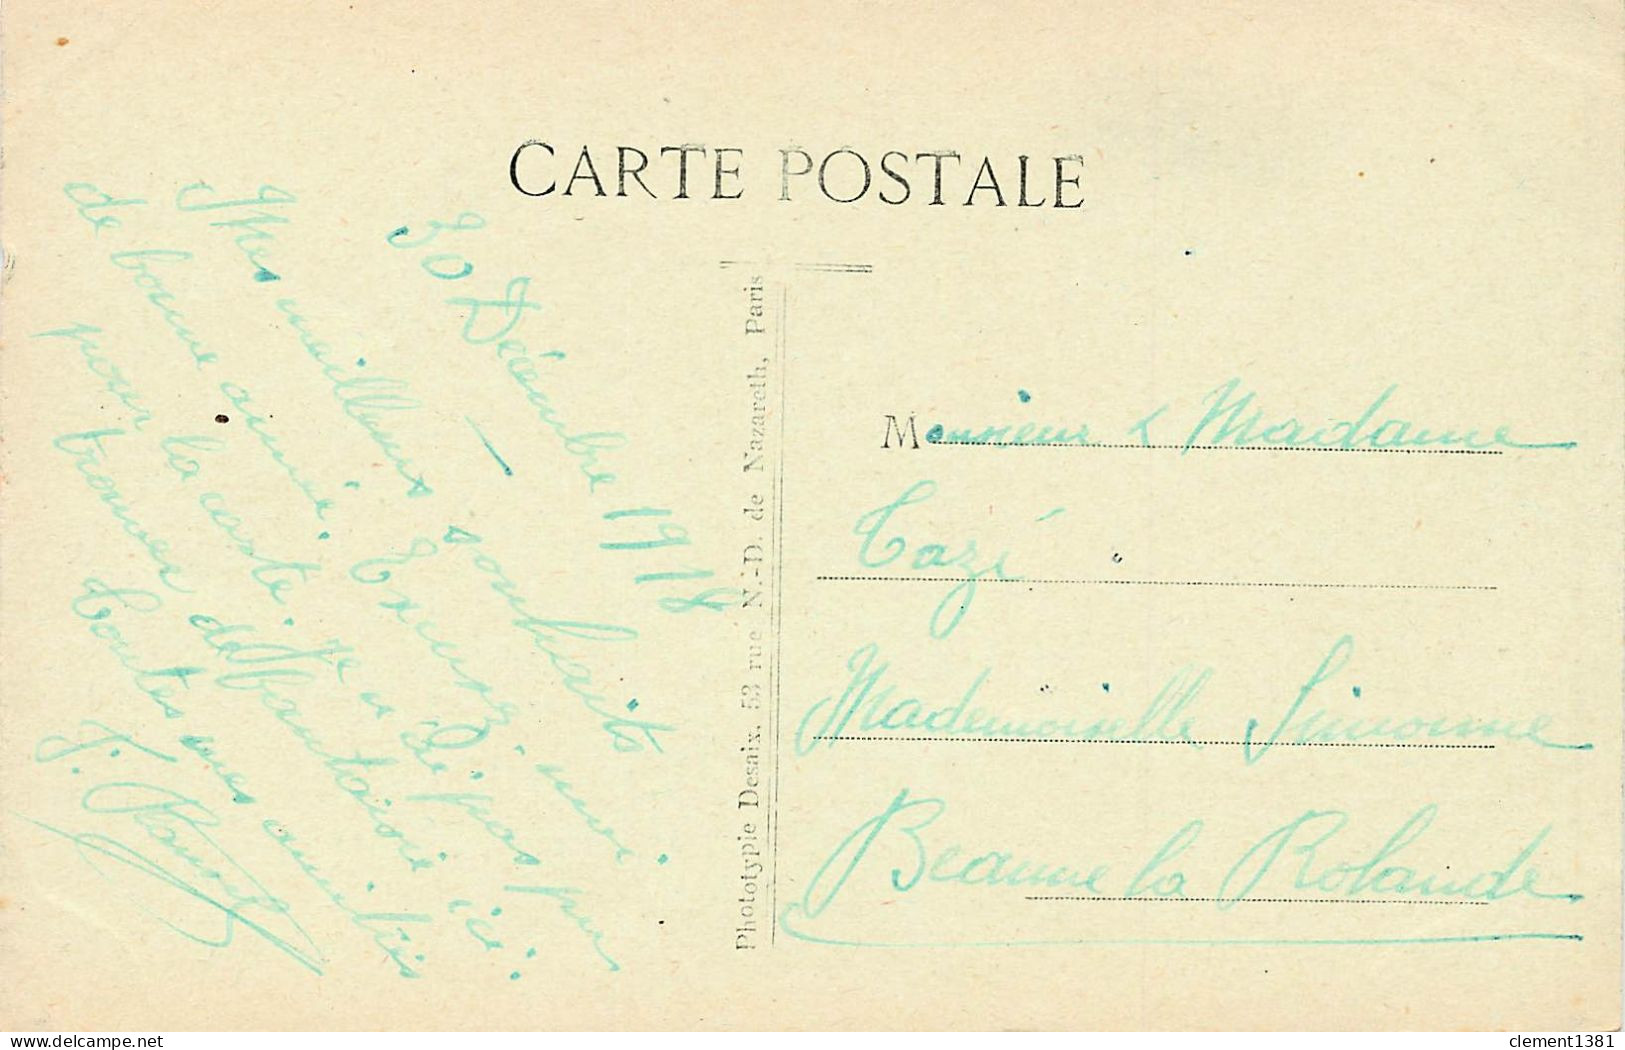 CARTE POSTALE
30 Décembre 1918
—
Mes meilleurs souhaits
de bonne année. Excusez-moi
pour la carte. Je n'ai pas pu
trouver de fantaisie ici.
Toutes mes amitiés
F.
Phototypie Desaix, 53 rue N.-D. de Nazareth, Paris
Monsieur & Madame
Tazé
Mademoiselle Simonne
Beaune la Rolande
delcampe.net
clement1381